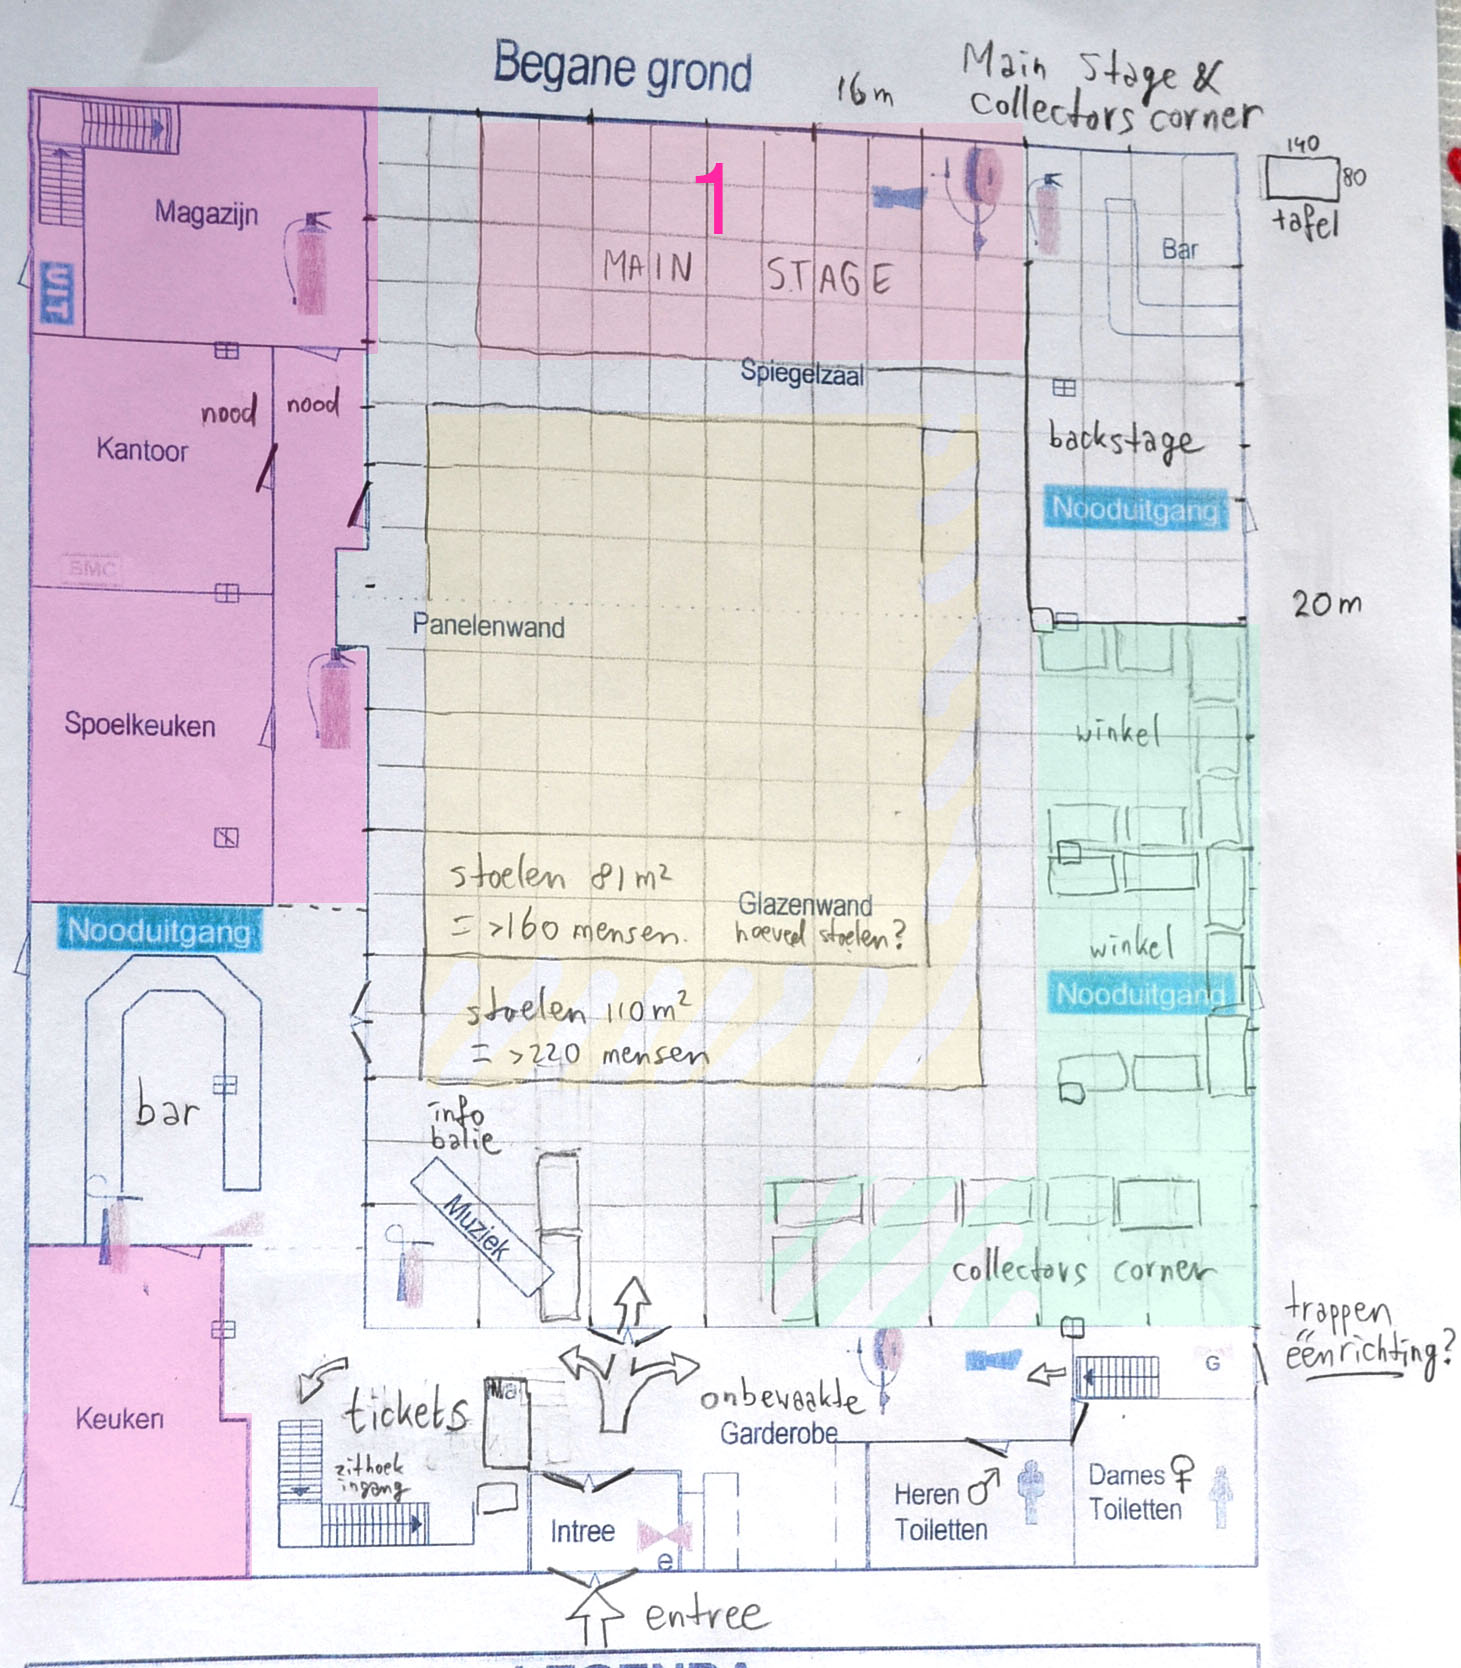 Begane grond
16m
Main Stage &
collectors corner
140
80
tafel
1
Magazijn
MAIN STAGE
Bar
Spiegelzaal
nood
nood
Kantoor
backstage
Nooduitgang
BMC
20m
Panelenwand
Spoelkeuken
winkel
stoelen 81m²
= >160 mensen.
Glazenwand
hoeveel stoelen?
Nooduitgang
winkel
Nooduitgang
stoelen 110m²
= >220 mensen
bar
info
balie
Muziek
collectors corner
trappen
éénrichting?
G
tickets
onbewaakte
Garderobe
Keuken
zithoek
ingang
Intree
e
Heren ♂
Toiletten
Dames ♀
Toiletten
entree